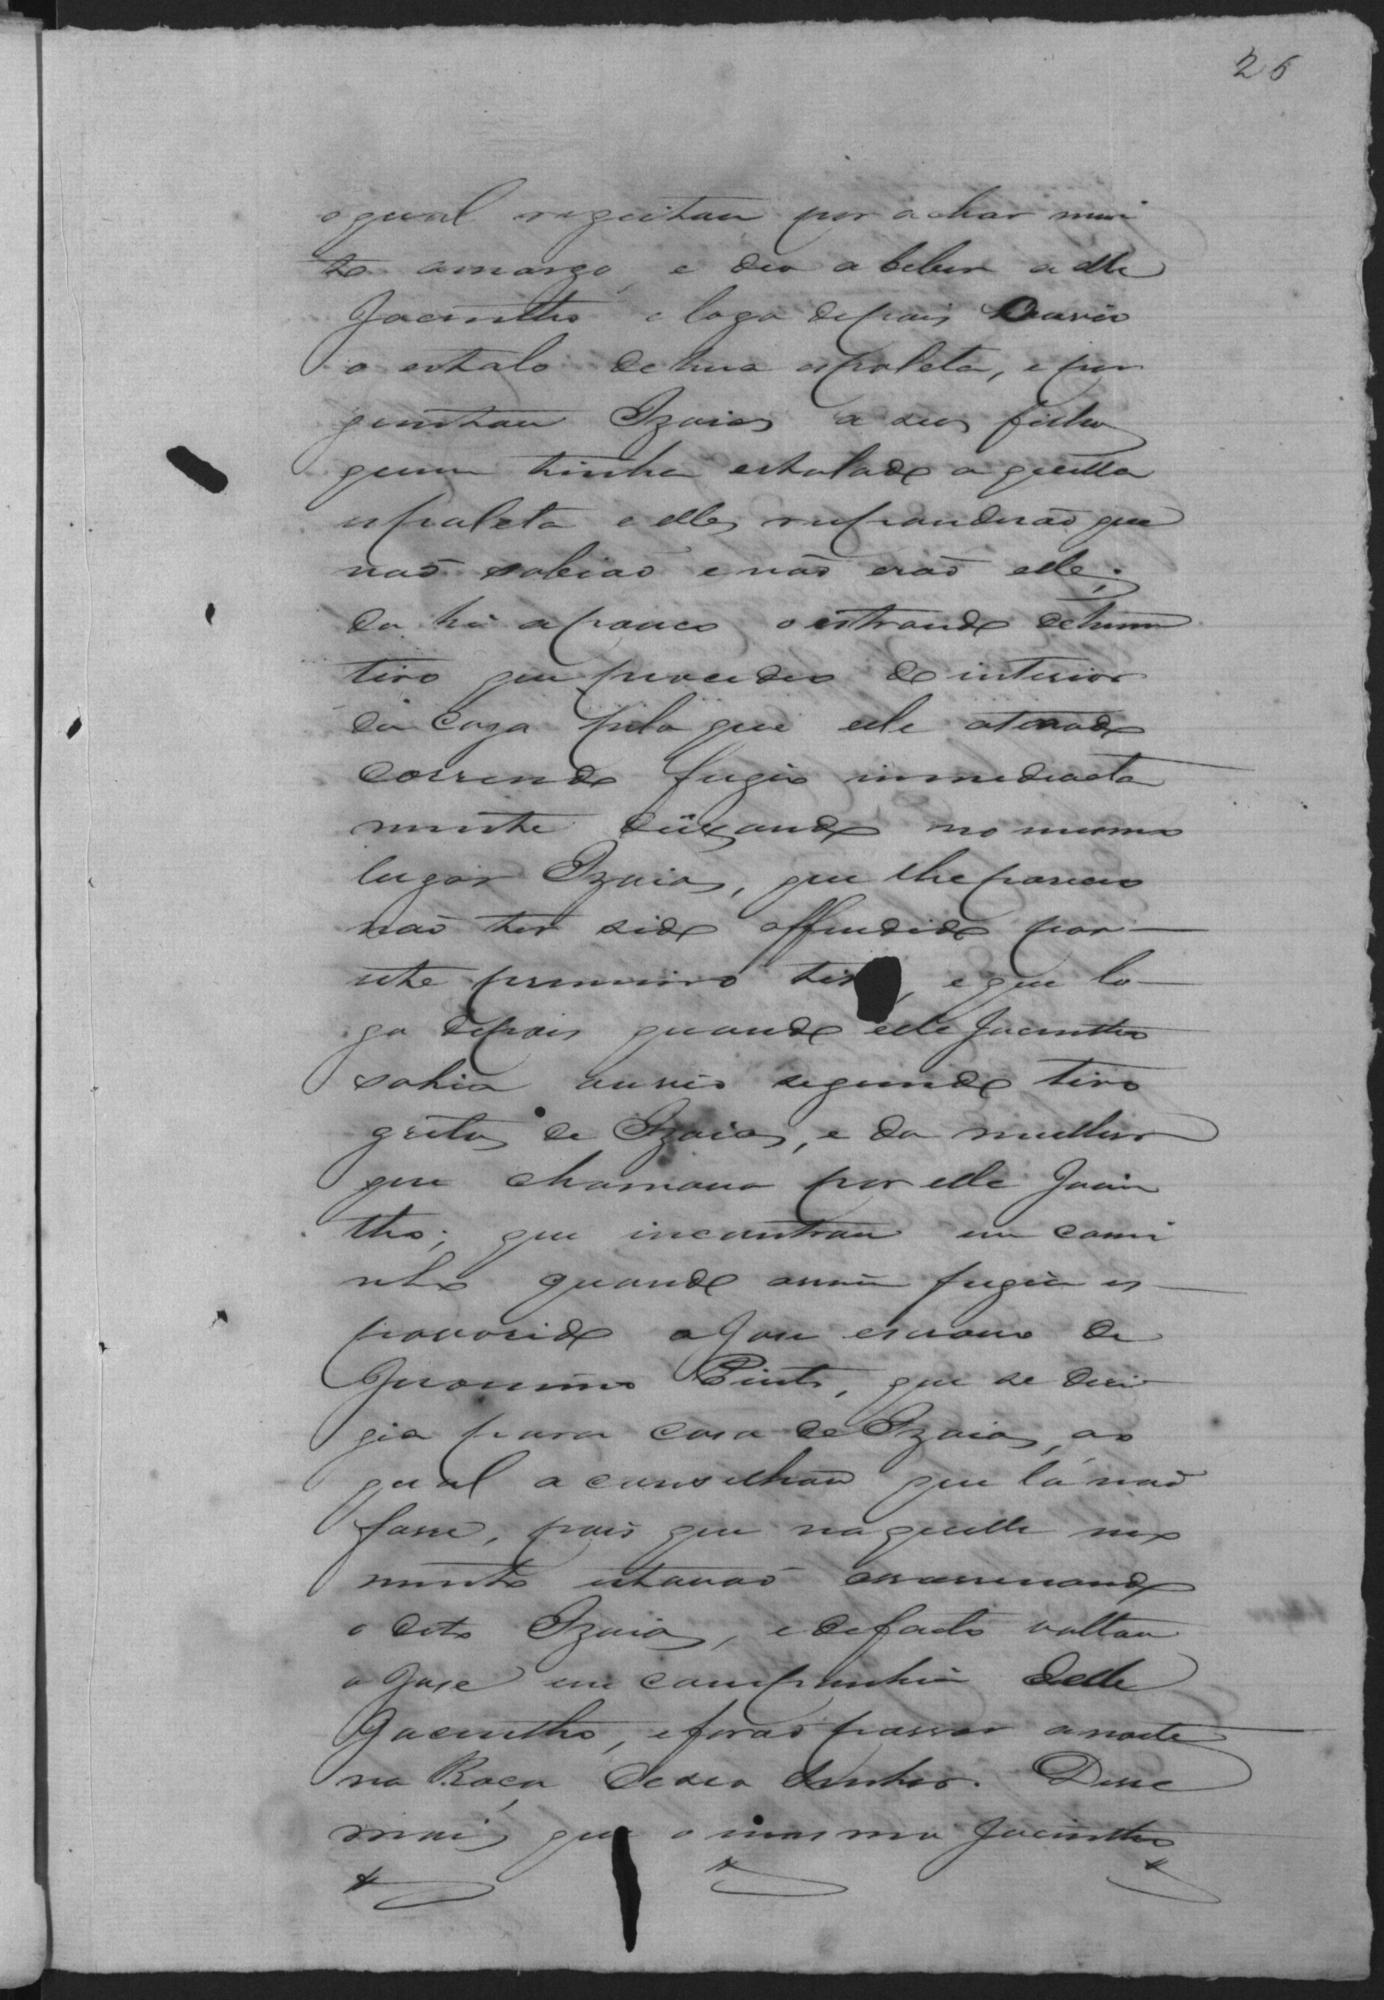 26
oqual regeitou por achar mui
to amargo, e deo a beber a elle
Jacintho e logo depois Ouvio
o estalo de hua espoleta, e per
guntou Izaias a seus filhos
quem tinha estalado aquella
espoleta e elles responderão que
não sabião e não erão elles;
da hi a pouco o estrondo de hum
tiro que procedeo do interior
da caza pelo que elle atorado
correndo fugio immediacta
mente deixando no mesmo
lugar Izaias, que lhe pareceo
não ter sido offendido por
este primeiro tiro, e que lo-
go depois quando elle Jacintho
sahia ouvio segundo tiro
gritos de Izaias, e da mulher
que chamava por elle Jacin
tho; que incontrou em cami
nho quando assim fugia es
pavorido a José escravo de
Jeronimo Pinto, que se deri
gia para casa de Izaias, ao
qual aconselhou que lá não
fosse, pois que naquelle mo
mento estavão assassinando
o dito Izaias, e defacto voltou
o José em companhia delle
Jacintho, e forão passar a noite
na Roça de seo Senhor. Disse
mais que o mesmo Jacintho